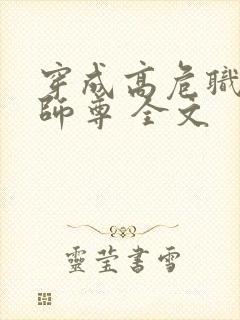 穿成高危職
師尊 全文
靈瑩書雪